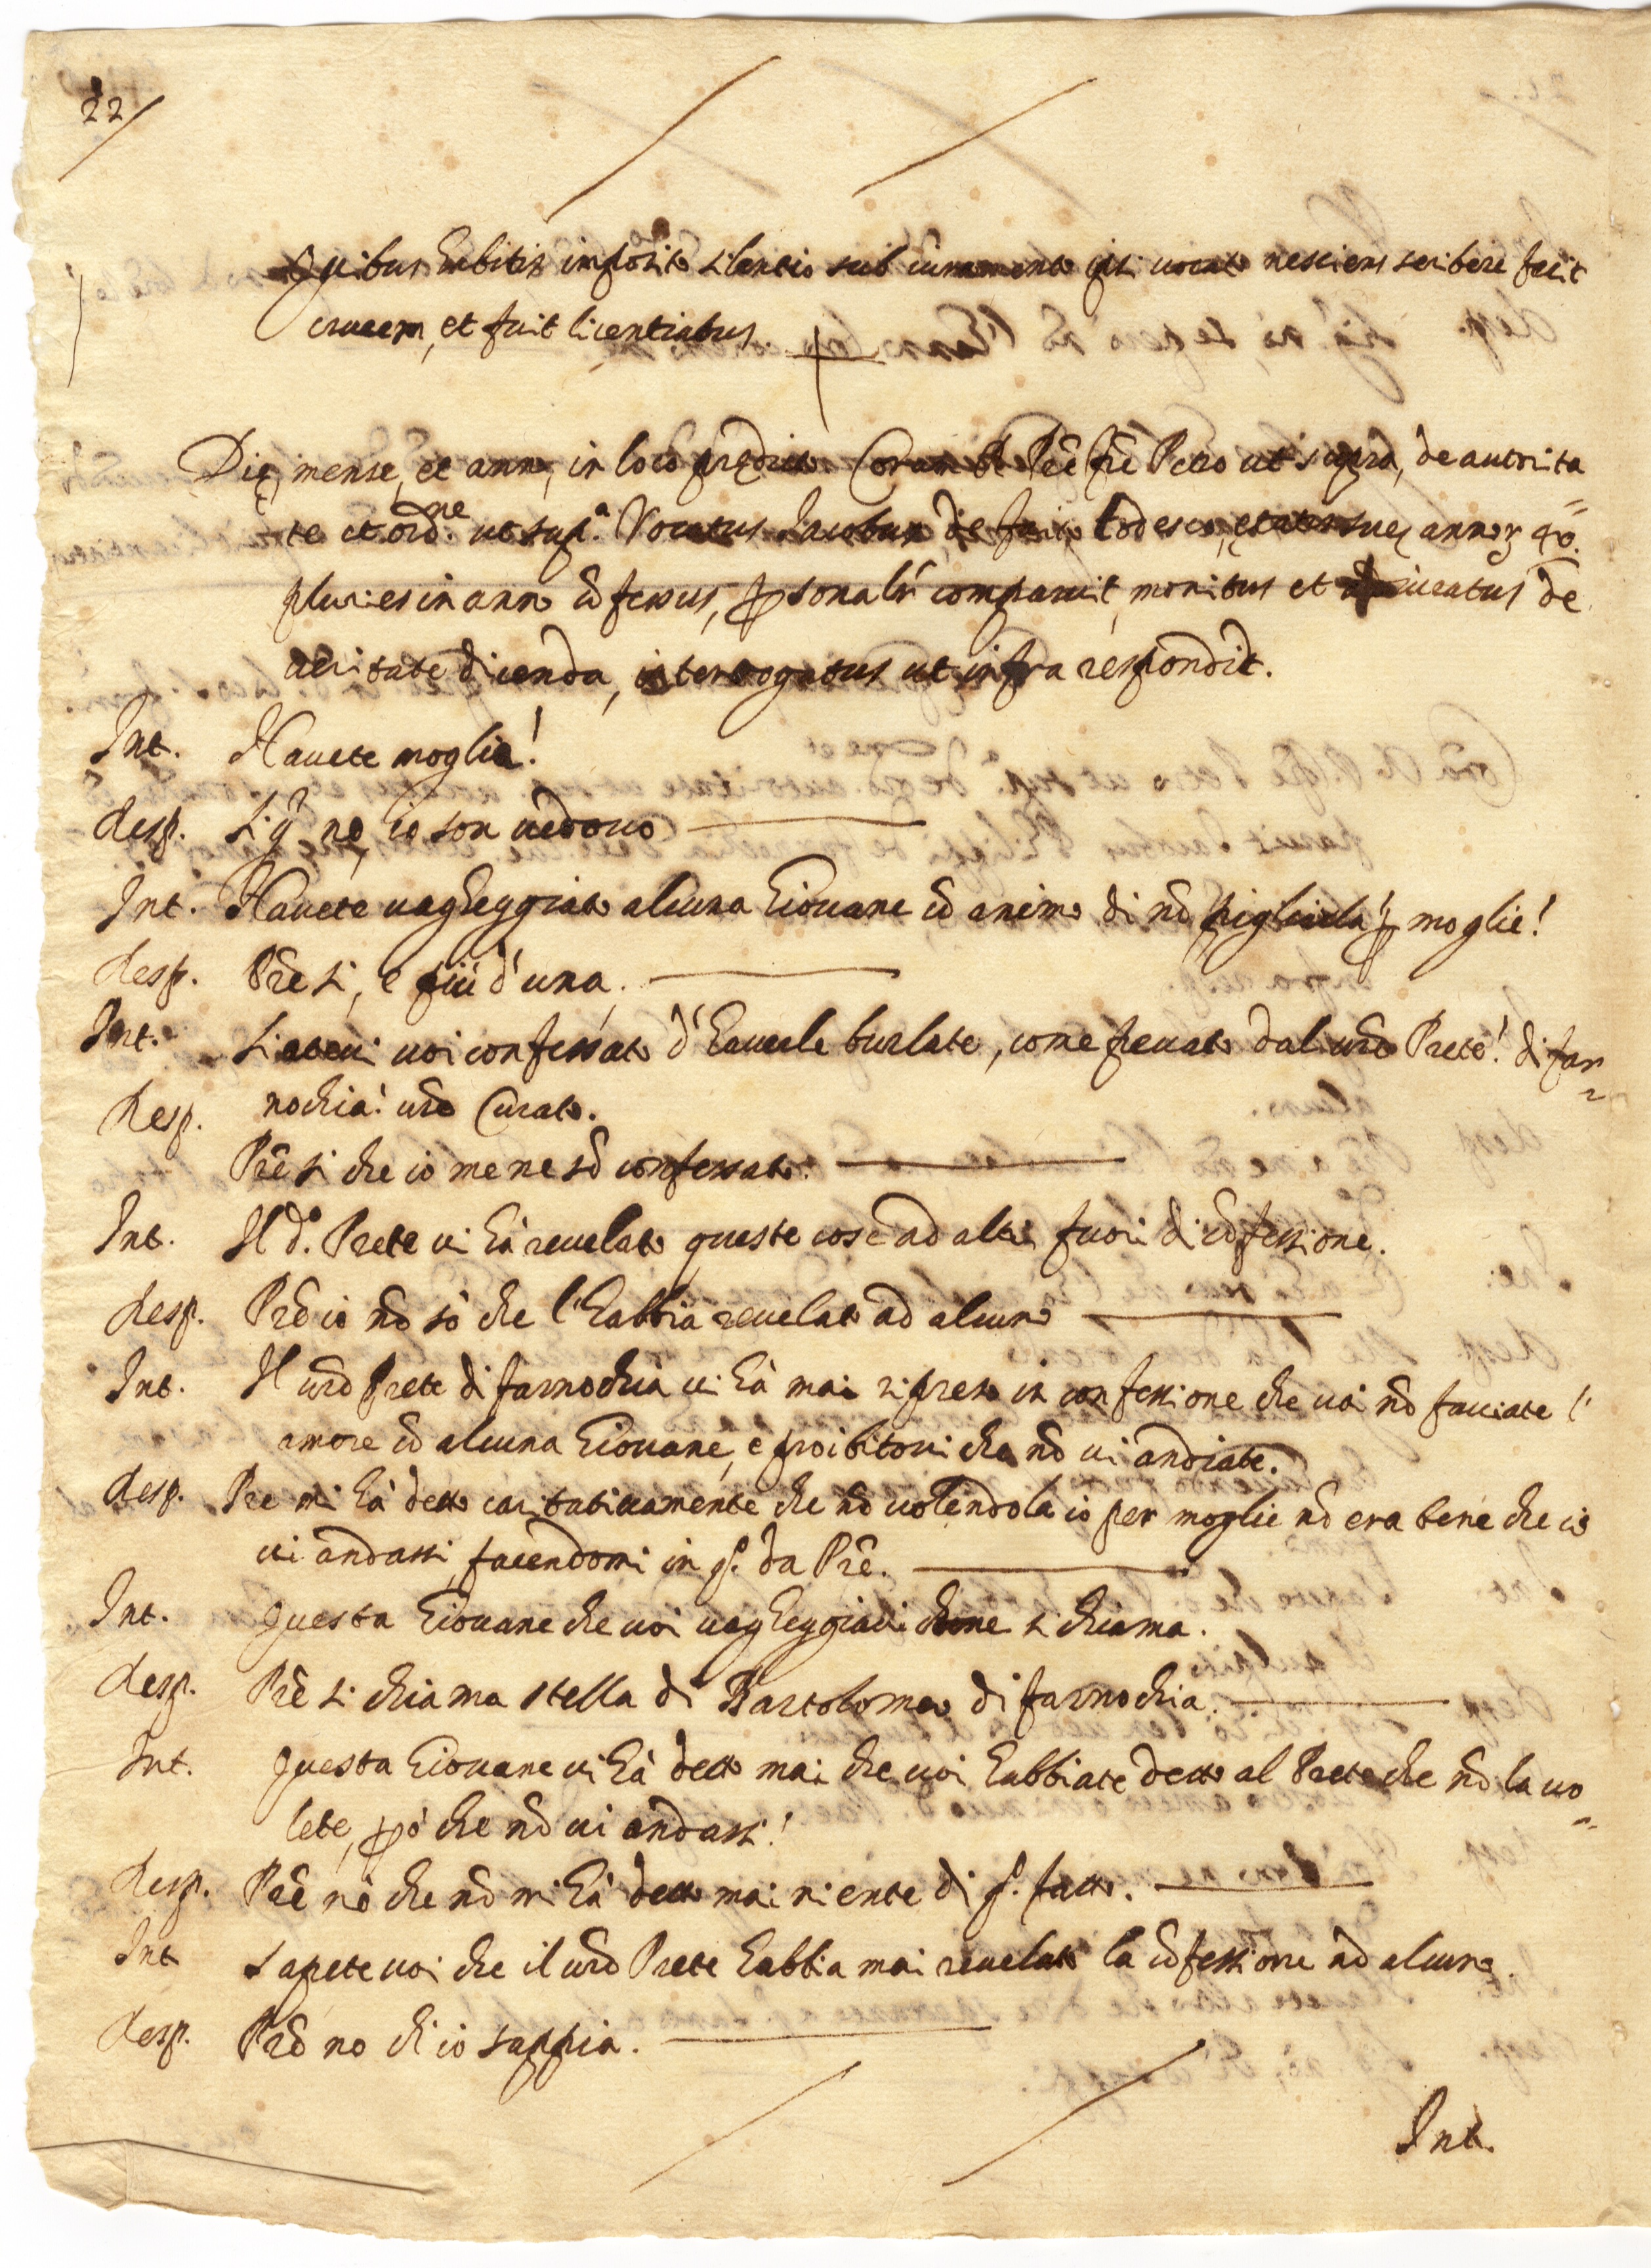 22
Quibus habitis imposito silentio sub iuramento ipsi vocato nesciens scribere fecit
crucem, et fuit licentiatus.
Die, mense, et anno, in loco prędicto Coram R. Pre fre Petro ut supra, de autorita
te et ord.ne ut sup.a Vocatus Jacobus de Todesco, ętatis suę annor 40.
pluries in anno cõfessus, personalr comparuit, monitus et iuratus de
veritate dicenda, interrogatus ut infra respondit.
Int. Havete moglie!
Resp. Sig.r nò, io son vedovo
Int. Havete vagheggiato alcuna Giovane cõ animo di nõ pigliarla p moglie!
Resp. Pre si, e più d'una.
Int. Siatevi voi confessato d'haverle burlate, come frenato dal vro Prete! di far
nochia! vro Curato.
Resp. Pre si che io me ne sõ confessato.
Int. Il d.o Prete vi hà revelato queste cose ad altri fuori di cõfessione.
Resp. Pre io nõ sò che l'habbia revelato ad alcuno
Int. Il vro Prete di farnochia vi hà mai ripreso in confessione che voi nõ facciate l'
amore cõ alcuna Giovane, e proibitovi che nõ vi andiate.
Resp. Pre mi hà detto caritativamente che nõ volendola io per moglie nõ era bene che io
vi andassi, facendomi in q.o da Pre.
Int. Questa Giovane che voi vagheggiavi come si chiama.
Resp. Pre si chiama stella di Bartolomeo di farnochia.
Int. Questa Giovane vi hà detto mai che voi habbiate detto al Prete che nõ la vo
lete, pò che nõ vi andassi!
Resp. Pre nò che nõ mi hà detto mai niente di q.o fatto.
Int sapete voi che il vro Prete habbia mai revelato la cõfessione ad alcuno.
Resp. Pre no ch'io sappia.
Int.